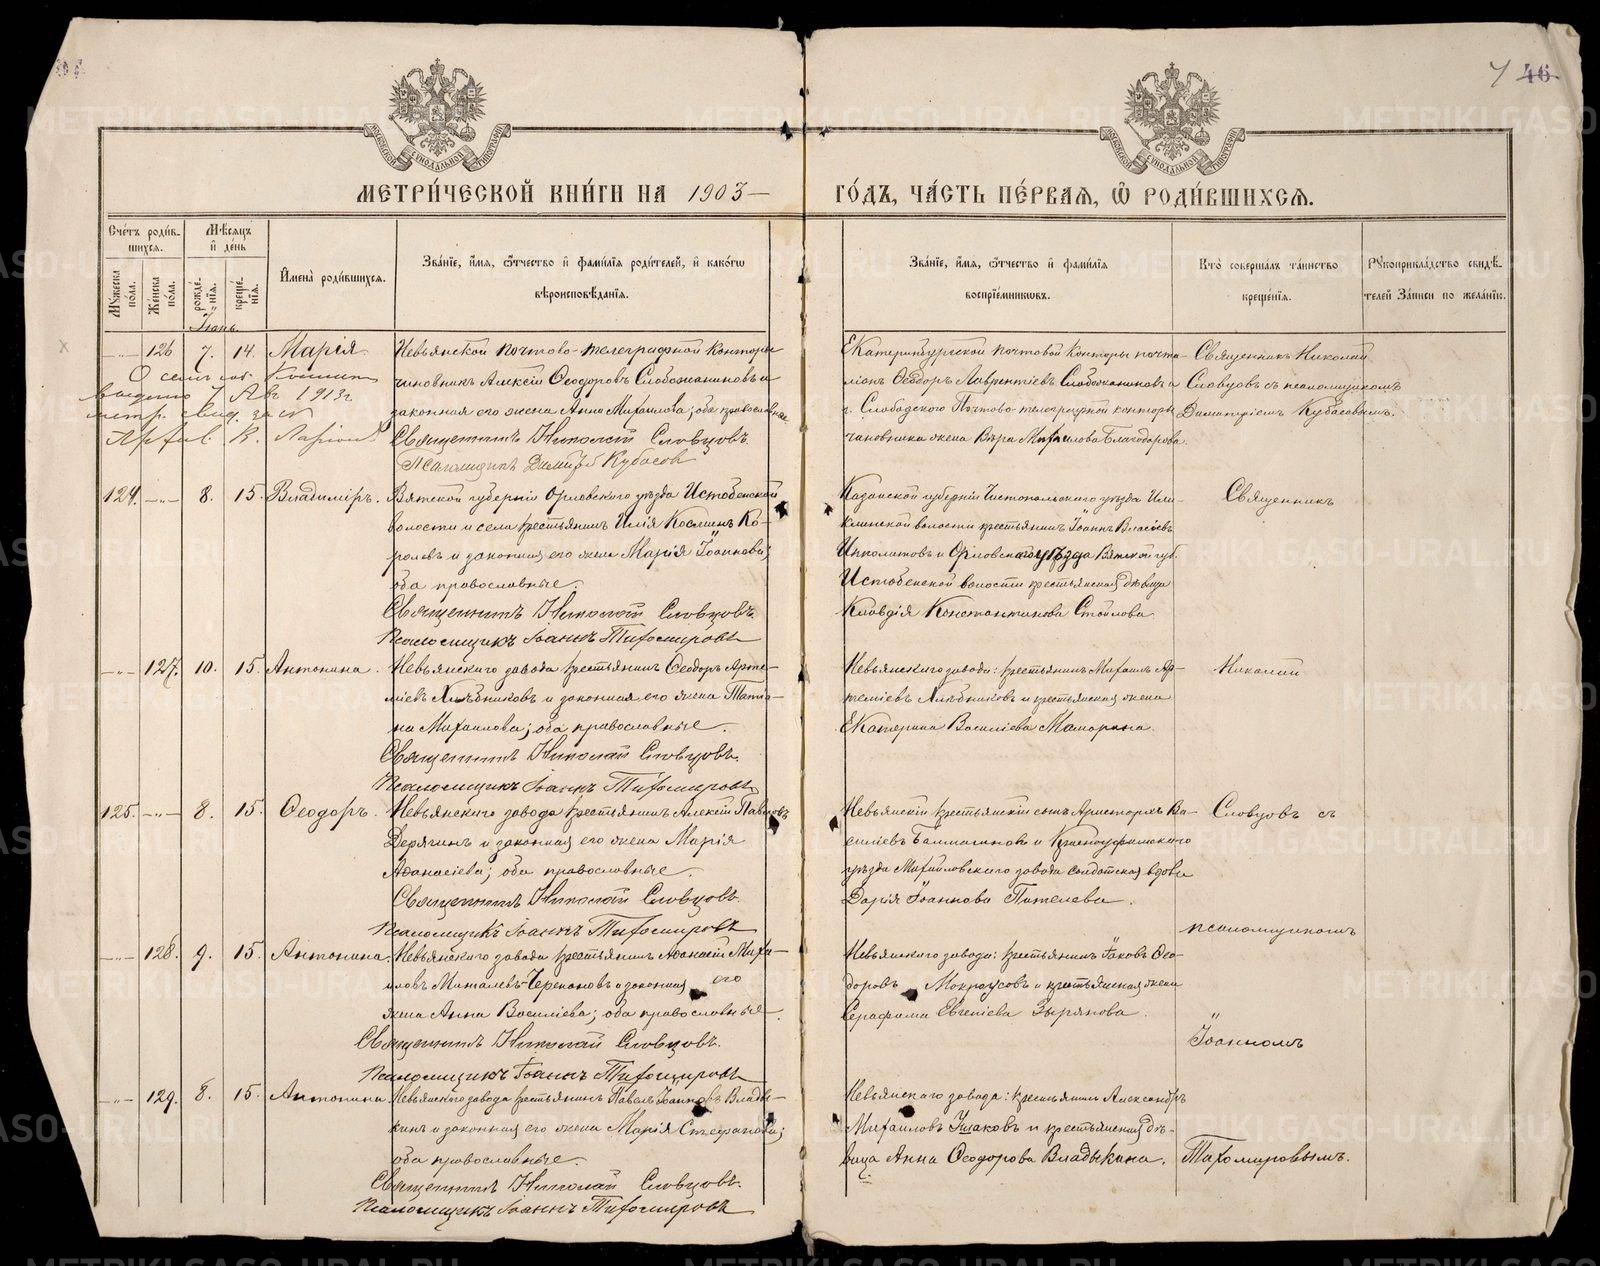 7 46
МОСКОВСКОЙ СѴНОДАЛЬНОЙ ТИПОГРАФІИ
МОСКОВСКОЙ СѴНОДАЛЬНОЙ ТИПОГРАФІИ
МЕТРИ́ЧЕСКОЙ КНИ́ГИ НА 1903 —
ГО́ДЪ, ЧА́СТЬ ПЕ́РВАЯ, Ѽ РОДИ́ВШИХСЯ.
Сче́тъ роди́в-
шихся.
Му́жеска по́ла.
Же́нска по́ла.
Мѣ́сяцъ
и де́нь
рожде́-
нїя.
креще́-
нїя.
Имена̀ роди́вшихся.
Зва́нїе, и́мя, ѻ҆́тчество и фами́лїя роди́телей, и како́гѡ
вѣроисповѣ́данїя.
Зва́нїе, и́мя, ѻ҆́тчество и фами́лїя
воспрїе́мникѡвъ.
Кто̀ соверша́лъ та́инство
креще́нїя.
Рукоприкла́дство свидѣ́-
телей за́писи по жела́нїю.
126 7. 14. Марія.
Невьянской почтово-телеграфной конторы
чиновникъ Алексій Ѳеодоровъ Слобожаниновъ и
законная его жена Анна Михаилова; оба православные
Священникъ Николай Словцовъ.
Псаломщикъ Димитрій Кубасовъ
О семъ
выдано 7 Авг 1913 г
метр. свид. за №
Екатеринбургской почтовой конторы почта-
ліонъ Ѳеодоръ Лаврентіевъ Слобожаниновъ и
г. Слободского Почтово-телеграфной конторы
чиновника жена Вѣра Михаилова Благодарова
Священникъ Николай
Словцовъ съ псаломщикомъ
Димитріемъ Кубасовымъ.
124. —"— 8. 15. Владиміръ.
Вятской губерніи Орловскаго уѣзда Истобенской
волости и села крестьянинъ Илія Косминъ Ко-
ролевъ и законная его жена Марія Іоаннова;
оба православные.
Священникъ Николай Словцовъ.
Псаломщикъ Іоаннъ Тихомировъ
Казанской губерніи Чистопольскаго уѣзда
волости крестьянинъ Іоаннъ Власіевъ
Ипполитовъ и Орловскаго уѣзда Вятской губ.
Истобенской волости крестьянская дѣвица
Клавдія Константинова Стоилова.
Священникъ
—"— 127. 10. 15. Антонина.
Невьянскаго завода крестьянинъ Ѳеодоръ Арте-
міевъ Хлѣбниковъ и законная его жена Татіа-
на Михаилова; оба православные.
Священникъ Николай Словцовъ.
Псаломщикъ Іоаннъ Тихомировъ
Невьянскаго завода: крестьянинъ Михаилъ Ар-
теміевъ Хлѣбниковъ и крестьянская жена
Екатерина Василіева Маторина.
Николай
125. —"— 8. 15. Ѳеодоръ.
Невьянскаго завода крестьянинъ Алексій Павловъ
Дерягинъ и законная его жена Марія
Аѳанасіева; оба православные.
Священникъ Николай Словцовъ.
Псаломщикъ Іоаннъ Тихомировъ
Невьянскій крестьянскій сынъ Аристархъ Ва-
силіевъ и Красноуфимскаго
уѣзда Михайловскаго завода солдатская вдова
Дарія Іоаннова Пателева.
Словцовъ съ
псаломщикомъ
—"— 128. 9. 15. Антонина.
Невьянскаго завода крестьянинъ Аѳанасій Миха-
иловъ и законная его
жена Анна Василіева; оба православные.
Священникъ Николай Словцовъ.
Псаломщикъ Іоаннъ Тихомировъ
Невьянскаго завода: крестьянинъ Іаковъ Ѳео-
доровъ Мокроусовъ и крестьянская жена
Серафима Евгеніева Зырянова.
Іоанномъ
—"— 129. 8. 15. Антонина.
Невьянскаго завода крестьянинъ Павелъ Іоанновъ Влады-
кинъ и законная его жена Марія Стефанова;
оба православные.
Священникъ Николай Словцовъ.
Псаломщикъ Іоаннъ Тихомировъ
Невьянскаго завода: крестьянинъ Александръ
Михаиловъ Ушаковъ и крестьянская дѣ-
вица Анна Ѳеодорова Владыкина.
Тихомировымъ.
METRIKI.GASO-URAL.RU